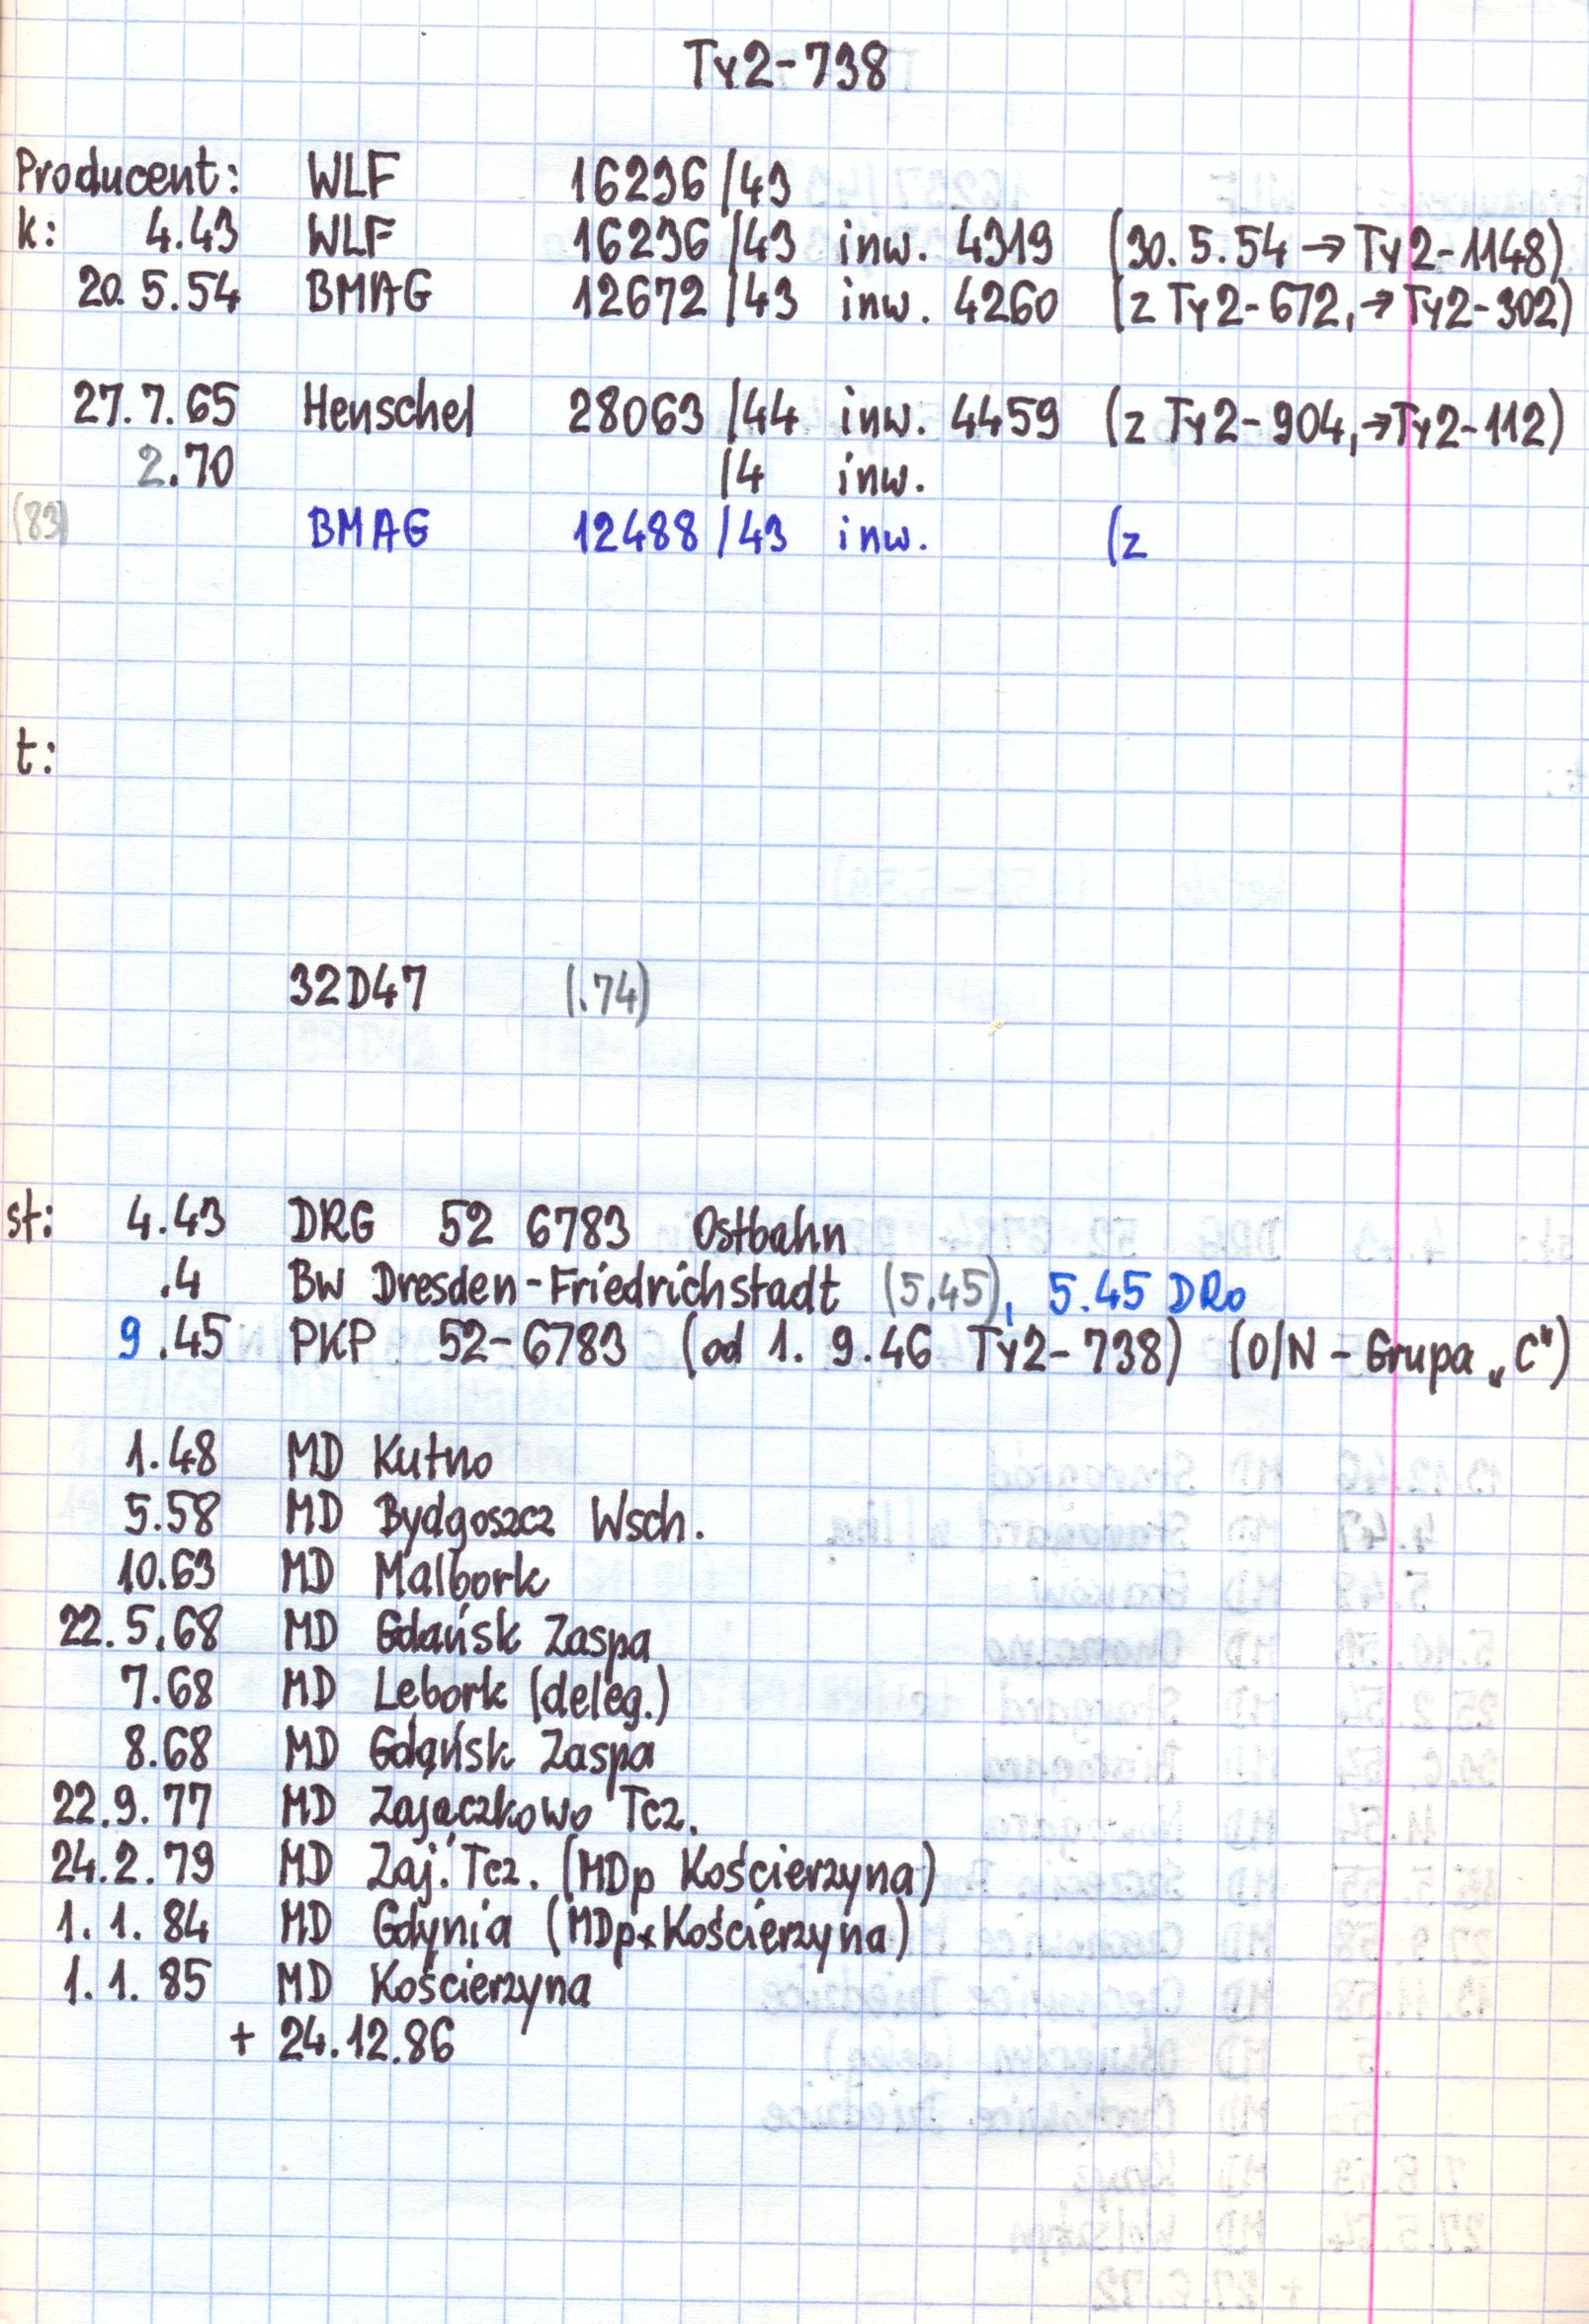 Ty2-738
Producent: WLF 16236/43
k: 4.43 WLF 16236/43 inw. 4319 (30.5.54 → Ty2-1148)
20.5.54 BMAG 12672/43 inw. 4260 (z Ty2-672, → Ty2-302)
27.7.65 Henschel 28063/44 inw. 4459 (z Ty2-904, → Ty2-112)
2.70 /4 inw.
(83) BMAG 12488/43 inw. (z
t:
32D47 (.74)
st: 4.43 DRG 52 6783 Ostbahn
.4 BW Dresden-Friedrichstadt (5.45), 5.45 DRo
9.45 PKP 52-6783 (od 1.9.46 Ty2-738) (O/N - Grupa „C")
1.48 MD Kutno
5.58 MD Bydgoszcz Wsch.
10.63 MD Malbork
22.5.68 MD Gdańsk Zaspa
7.68 MD Lębork (deleg.)
8.68 MD Gdańsk Zaspa
22.9.77 MD Zajączkowo Tcz.
24.2.79 MD Zaj. Tcz. (MDp Kościerzyna)
1.1.84 MD Gdynia (MDp Kościerzyna)
1.1.85 MD Kościerzyna
+ 24.12.86